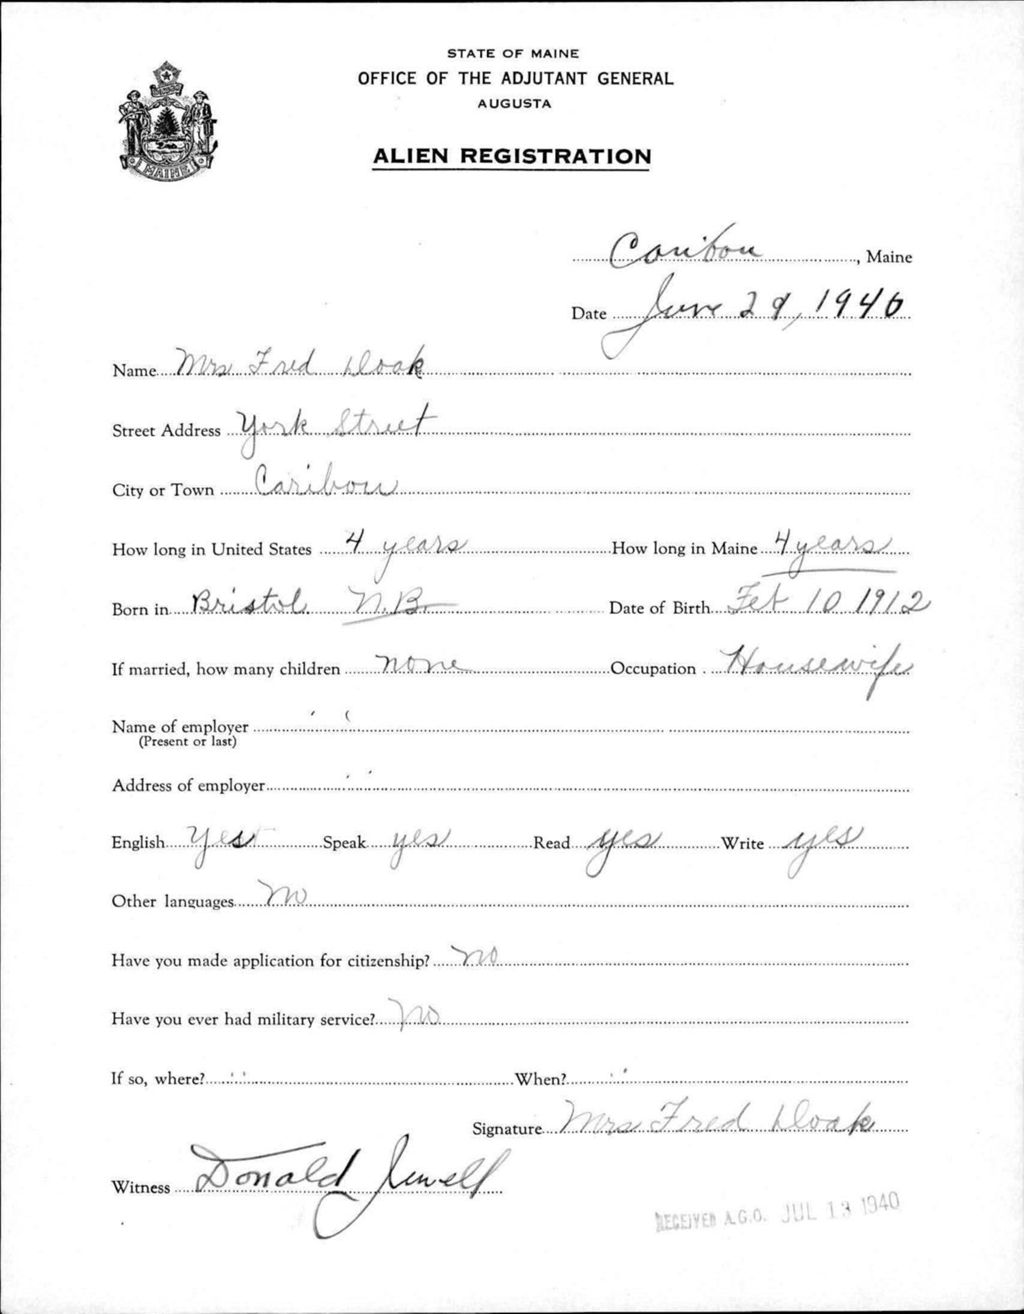 STATE OF MAINE
OFFICE OF THE ADJUTANT GENERAL
AUGUSTA
ALIEN REGISTRATION
MAINE
Caribou, Maine
Date June 29, 1940
Name Mrs Fred Doak
Street Address York Street
City or Town Caribou
How long in United States 4 years How long in Maine 4 years
Born in Bristol N.B. Date of Birth Feb 10 1912
If married, how many children none Occupation Housewife
Name of employer
(Present or last)
Address of employer
English Yes Speak yes Read yes Write yes
Other languages No
Have you made application for citizenship? No
Have you ever had military service? No
If so, where? When?
Signature Mrs Fred Doak
Witness Donald Jewell
RECEIVED A.G.O. JUL 13 1940